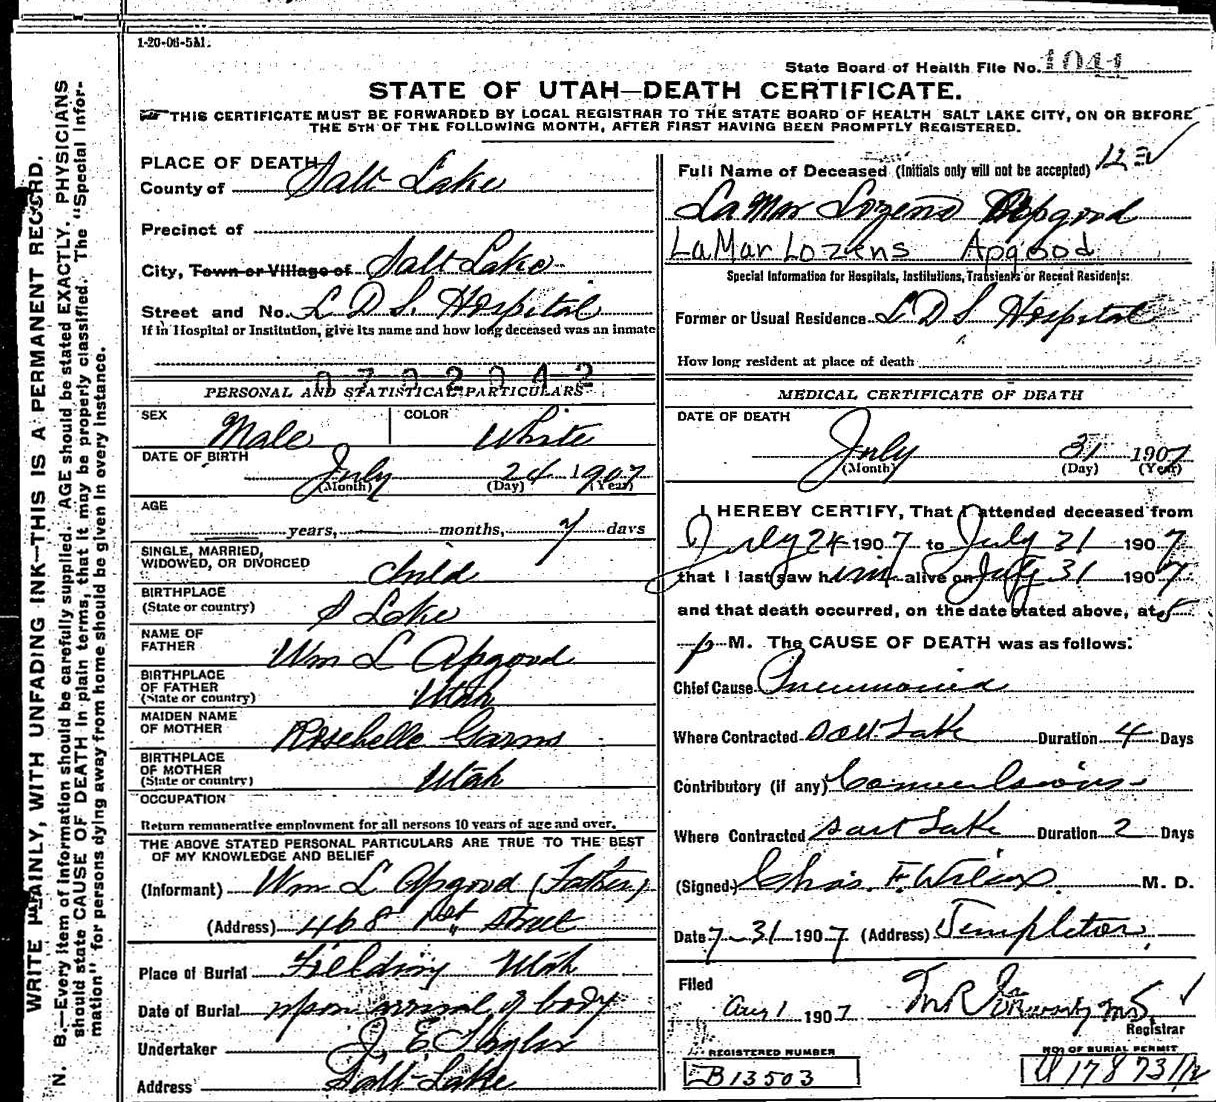 1-20-06-5M.
State Board of Health File No. 1044
STATE OF UTAH—DEATH CERTIFICATE.
THIS CERTIFICATE MUST BE FORWARDED BY LOCAL REGISTRAR TO THE STATE BOARD OF HEALTH SALT LAKE CITY, ON OR BEFORE
THE 5TH OF THE FOLLOWING MONTH, AFTER FIRST HAVING BEEN PROMPTLY REGISTERED.
WRITE PLAINLY, WITH UNFADING INK—THIS IS A PERMANENT RECORD.
N. B.—Every item of Information should be carefully supplied. AGE should be stated EXACTLY. PHYSICIANS
should state CAUSE OF DEATH in plain terms, that it may be properly classified. The "Special Infor-
mation" for persons dying away from home should be given in every instance.
PLACE OF DEATH
County of Salt Lake
Precinct of
City, Town or Village of Salt Lake
Street and No. L D S. Hospital
If in Hospital or Institution, give its name and how long deceased was an inmate
PERSONAL AND STATISTICAL PARTICULARS
SEX Male COLOR White
DATE OF BIRTH
July 24 1907
(Month) (Day) (Year)
AGE
years, months, 7 days
SINGLE, MARRIED,
WIDOWED, OR DIVORCED Child
BIRTHPLACE
(State or country) S Lake
NAME OF
FATHER Wm L Apgood
BIRTHPLACE
OF FATHER
(State or country) Utah
MAIDEN NAME
OF MOTHER Rosebelle Garns
BIRTHPLACE
OF MOTHER
(State or country) Utah
OCCUPATION
Return remunerative employment for all persons 10 years of age and over.
THE ABOVE STATED PERSONAL PARTICULARS ARE TRUE TO THE BEST
OF MY KNOWLEDGE AND BELIEF
(Informant) Wm L Apgood (Father)
(Address) 468 1st Street
Place of Burial Fielding Utah
Date of Burial upon arrival of body
Undertaker J. E. Taylor
Address Salt Lake
Full Name of Deceased (Initials only will not be accepted)
LaMar Lozens Apgood
LaMar Lozens Apgood
Special Information for Hospitals, Institutions, Transients or Recent Residents:
Former or Usual Residence L D S Hospital
How long resident at place of death
MEDICAL CERTIFICATE OF DEATH
DATE OF DEATH
July 31 1907
(Month) (Day) (Year)
I HEREBY CERTIFY, That I attended deceased from
July 24 1907 to July 31 1907
that I last saw him alive on July 31 1907
and that death occurred, on the date stated above, at 5
p M. The CAUSE OF DEATH was as follows:
Chief Cause Pneumonia
Where Contracted Salt Lake Duration 4 Days
Contributory (if any) Convulsions
Where Contracted Salt Lake Duration 2 Days
(Signed) Chas. F. Wilcox. M. D.
Date 7-31 1907 (Address) Templeton.
Filed
Aug 1 1907
Registrar
REGISTERED NUMBER
B13503
NO. OF BURIAL PERMIT